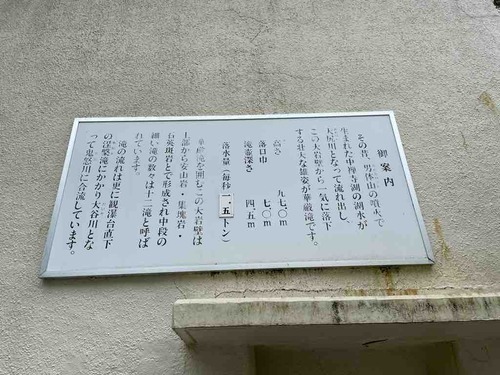 御案内
その昔、男体山の噴火で
生まれた中禅寺湖の湖水が
大尻川となって流れ出し、
この大岩壁から一気に落下
する壮大な雄姿が華厳滝です。
高さ 九七.〇m
落口巾 七.〇m
滝壺深さ 四.五m
落水量(毎秒一.五トン)
華厳滝を囲むこの大岩壁は
上部から安山岩・集塊岩・
石英斑岩とで形成され中段の
細い滝の数々は十二滝と呼ば
れています。
滝の流れは更に観瀑台直下
の涅槃滝にかかり大谷川とな
って鬼怒川に合流しています。